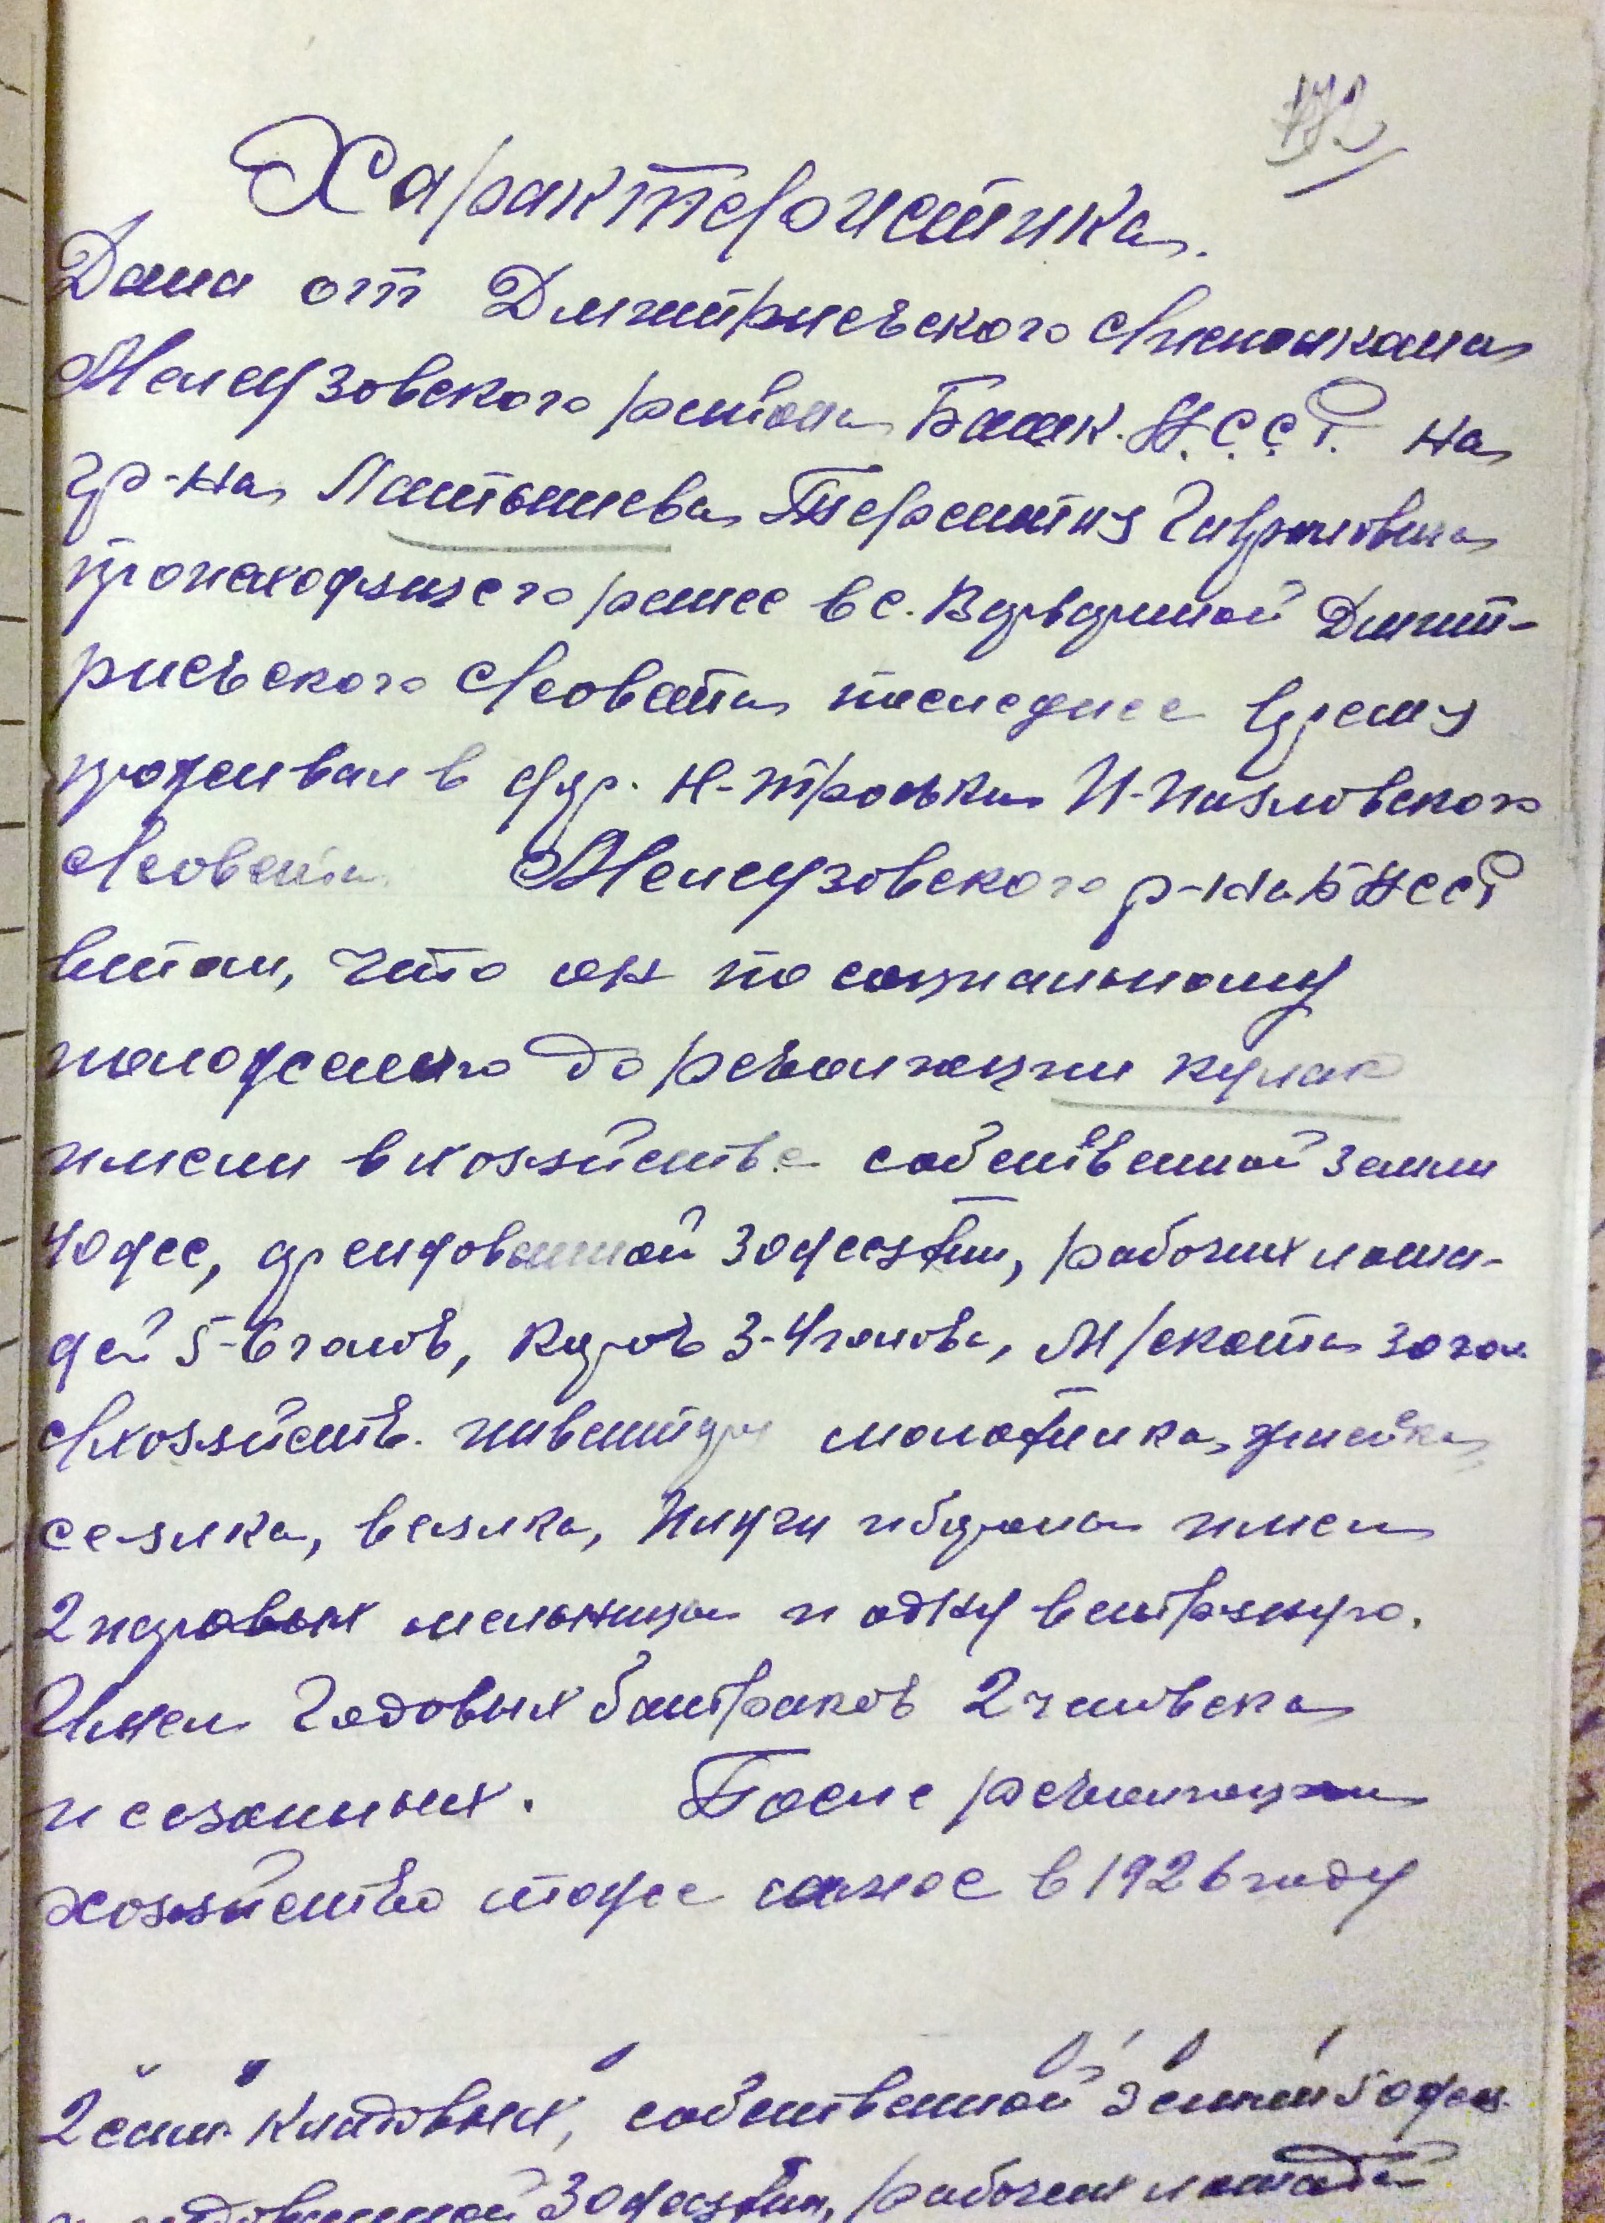 172
Характеристика.
Дана от Дмитриевского Сльисполкома
Мелеузовского района Башк. А.С.С.Р. на
гр-на Латышева Терентия Гавриловича
происходящего ранее в с. Варварином Дмит-
риевского Совета последнее время
проживал в дер. Н-Троевка И-
Совета Мелеузовского р-на БАССР
в том, что он по социальному
положению до революции кулак
имел в хозяйстве собственной земли
40 дес, арендованной 30 десятин, рабочих лоша-
дей 5-6 голов, коров 3-4 головы, М/скота 30 гол.
С/хозяйств. инвентаря молотилка, жнейка,
сеялка, веялка, плуги и борона имел
2 паровых мельницы и одну ветряную.
Имел годовых батраков 2 человека
и сезонных. После революции
хозяйство тоже самое в 1926 году
2 кладовых, собственной земли 50 дес.
30 десятин, рабочих лошадей